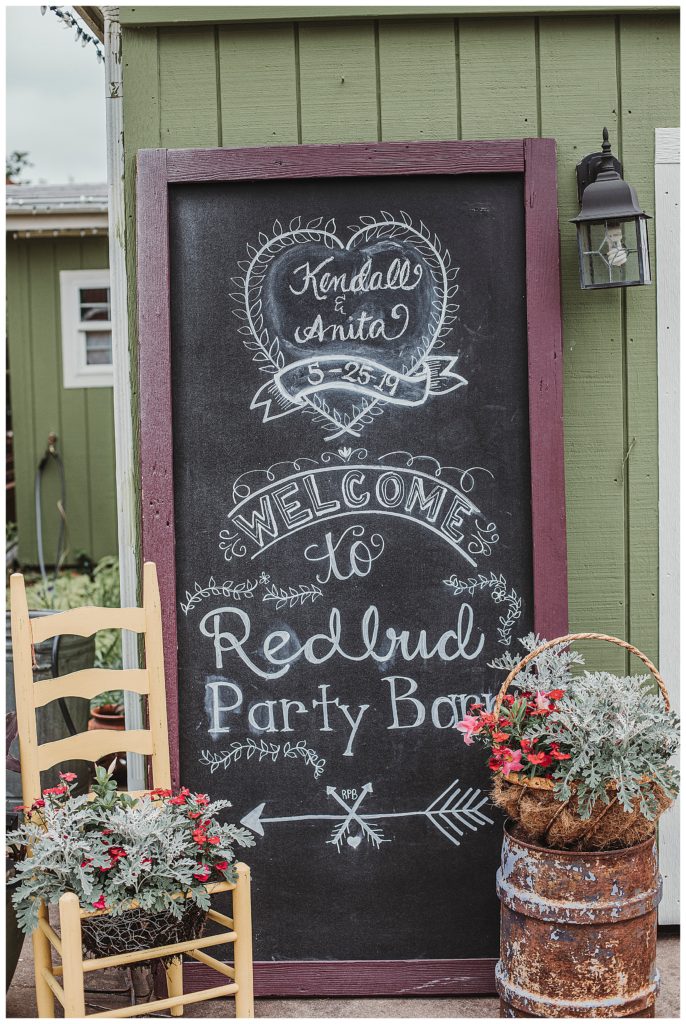 Kendall
&
Anita
5-25-19
WELCOME
to
Redbud
Party Barn
RPB